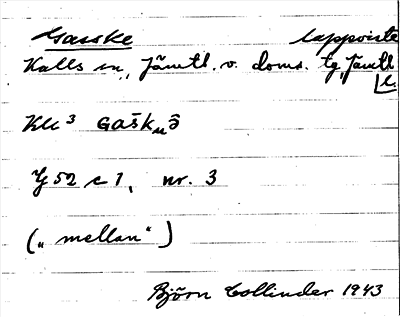 Gasske lappviste
Kalls sn, Jämtl. v. doms. tg, Jämtl. l.
Kll³ Gašk„ə̑
J 52 c 1, nr. 3
(„mellan“)
Björn Collinder 1943